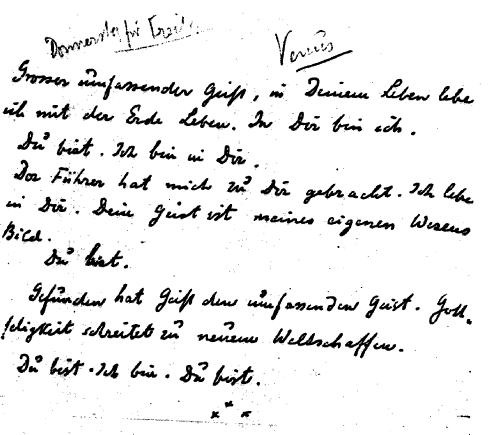 Donnerstag für Freitag
Venus
Grosser umfassender Geist, in Deinem Leben lebe
ich mit der Erde Leben. In Dir bin ich.
Du bist. Ich bin in Dir.
Der Führer hat mich zu Dir gebracht. Ich lebe
in Dir. Dein Geist ist meines eigenen Wesens
Bild.
Du bist.
Gefunden hat Geist den umfassenden Geist. Gott-
seligkeit schreitet zu neuem Weltschaffen.
Du bist. Ich bin. Du bist.